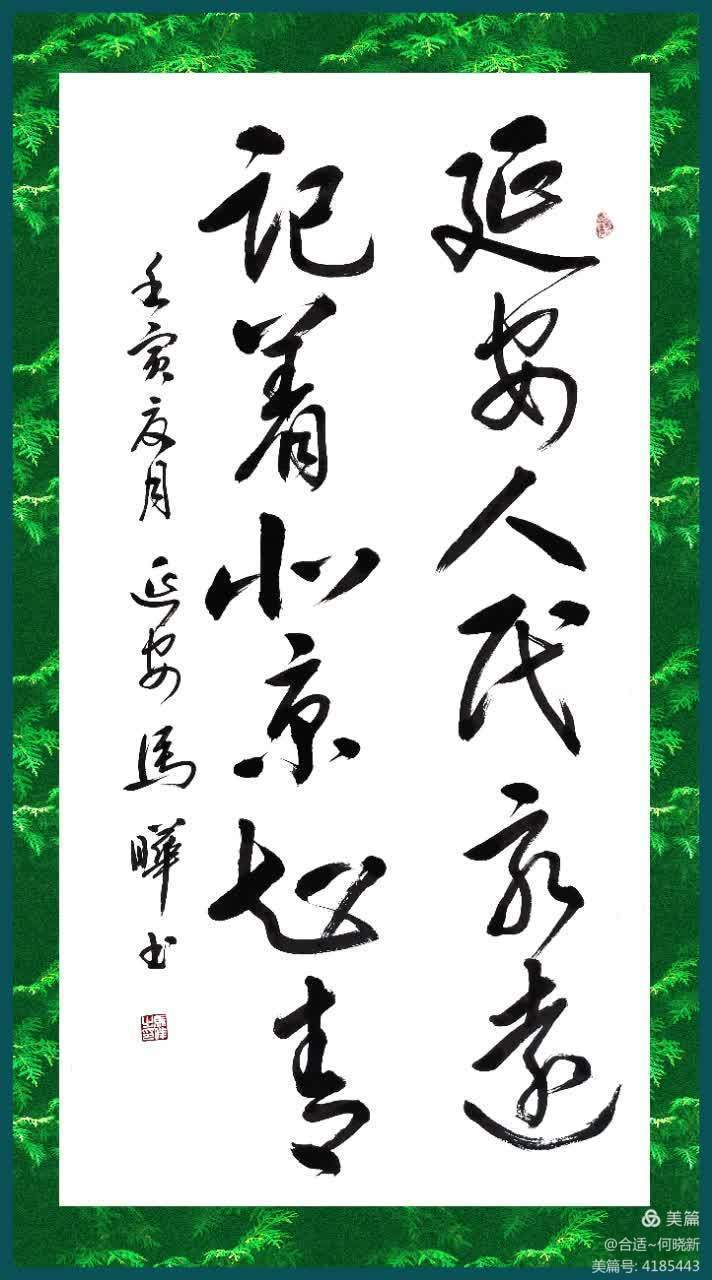 延安人民永遠
记着北京知青
壬寅夏月 延安 馬曄书
美篇
@合适~何晓新
美篇号: 4185443